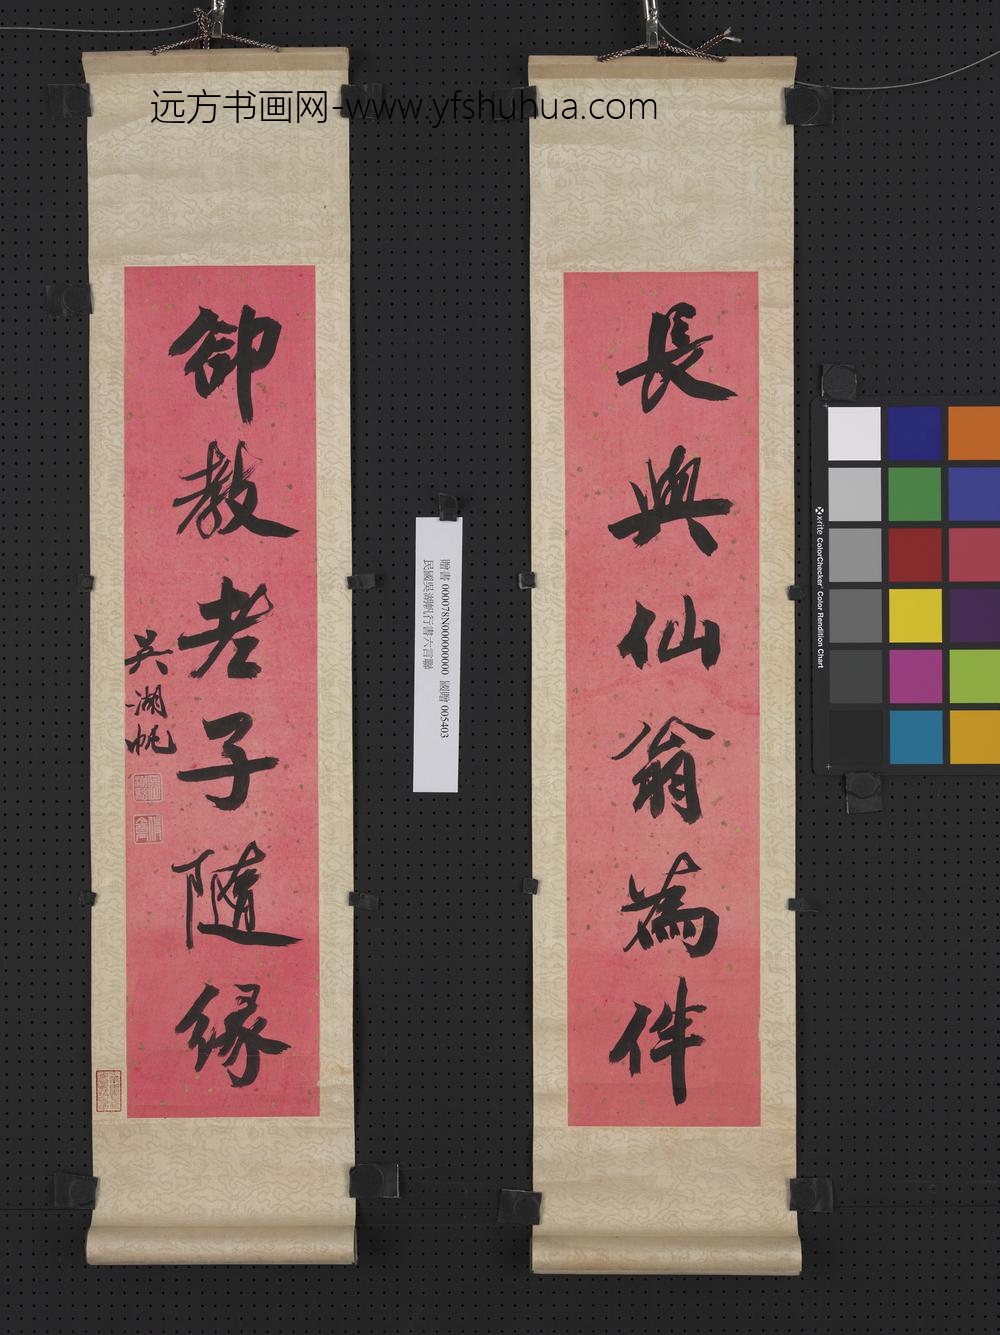 远方书画网-www.yfshuhua.com
長與仙翁為伴
卻教老子隨緣
吳湖帆
贈書 000078N000000000 國贈 005403
民國吳湖帆行書六言聯
x-rite ColorChecker Color Rendition Chart